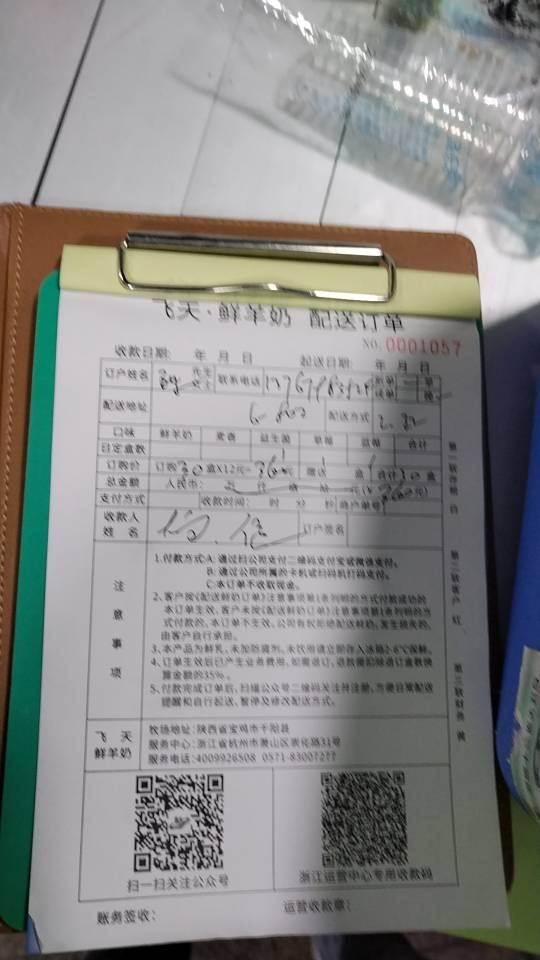 飞天·鲜羊奶 配送订单
NO.0001057
收款日期: 年 月 日 起送日期: 年 月 日
订户姓名 先生 女士 联系电话
配送地址 配送方式
口味 鲜羊奶 麦香 益生菌 草莓 蓝莓 合计
日定盒数 1
订购价 订购30盒X12元=360元 赠送 盒 合计 盒
总金额 人民币: (¥360元)
支付方式 收款时间: 时 分 秒 商户单号
收款人姓名 订户签名
注意事项
1.付款方式:A:通过扫公司支付二维码支付宝或微信支付。
B:通过公司所属的卡机或扫码机打码支付。
C:本订单不收取现金。
2.客户按《配送鲜奶订单》注意事项第1条列明的方式付款成功的
本订单生效,客户未按《配送鲜奶订单》注意事项第1条列明的方
式付款的,本订单不生效,公司有权拒绝配送鲜奶,发生损失的,
由客户自行承担。
3.本产品为鲜乳,未加防腐剂,未饮用请立即存入冰箱2-6℃保鲜。
4.订单生效后已产生业务费用,如需退订,退款需扣除退订盒数换
算金额的35%。
5.付款完成订单后,扫描公众号二维码关注并注册,方便日常配送
提醒和自行起送、暂停及修改配送方式。
飞天鲜羊奶
牧场地址:陕西省宝鸡市千阳县
服务中心:浙江省杭州市萧山区崇化路31号
服务电话:4009926508 0571-83007277
扫一扫关注公众号 浙江运营中心专用收款码
账务签收: 运营收款章:
第二联客户 红
第三联财务 黄